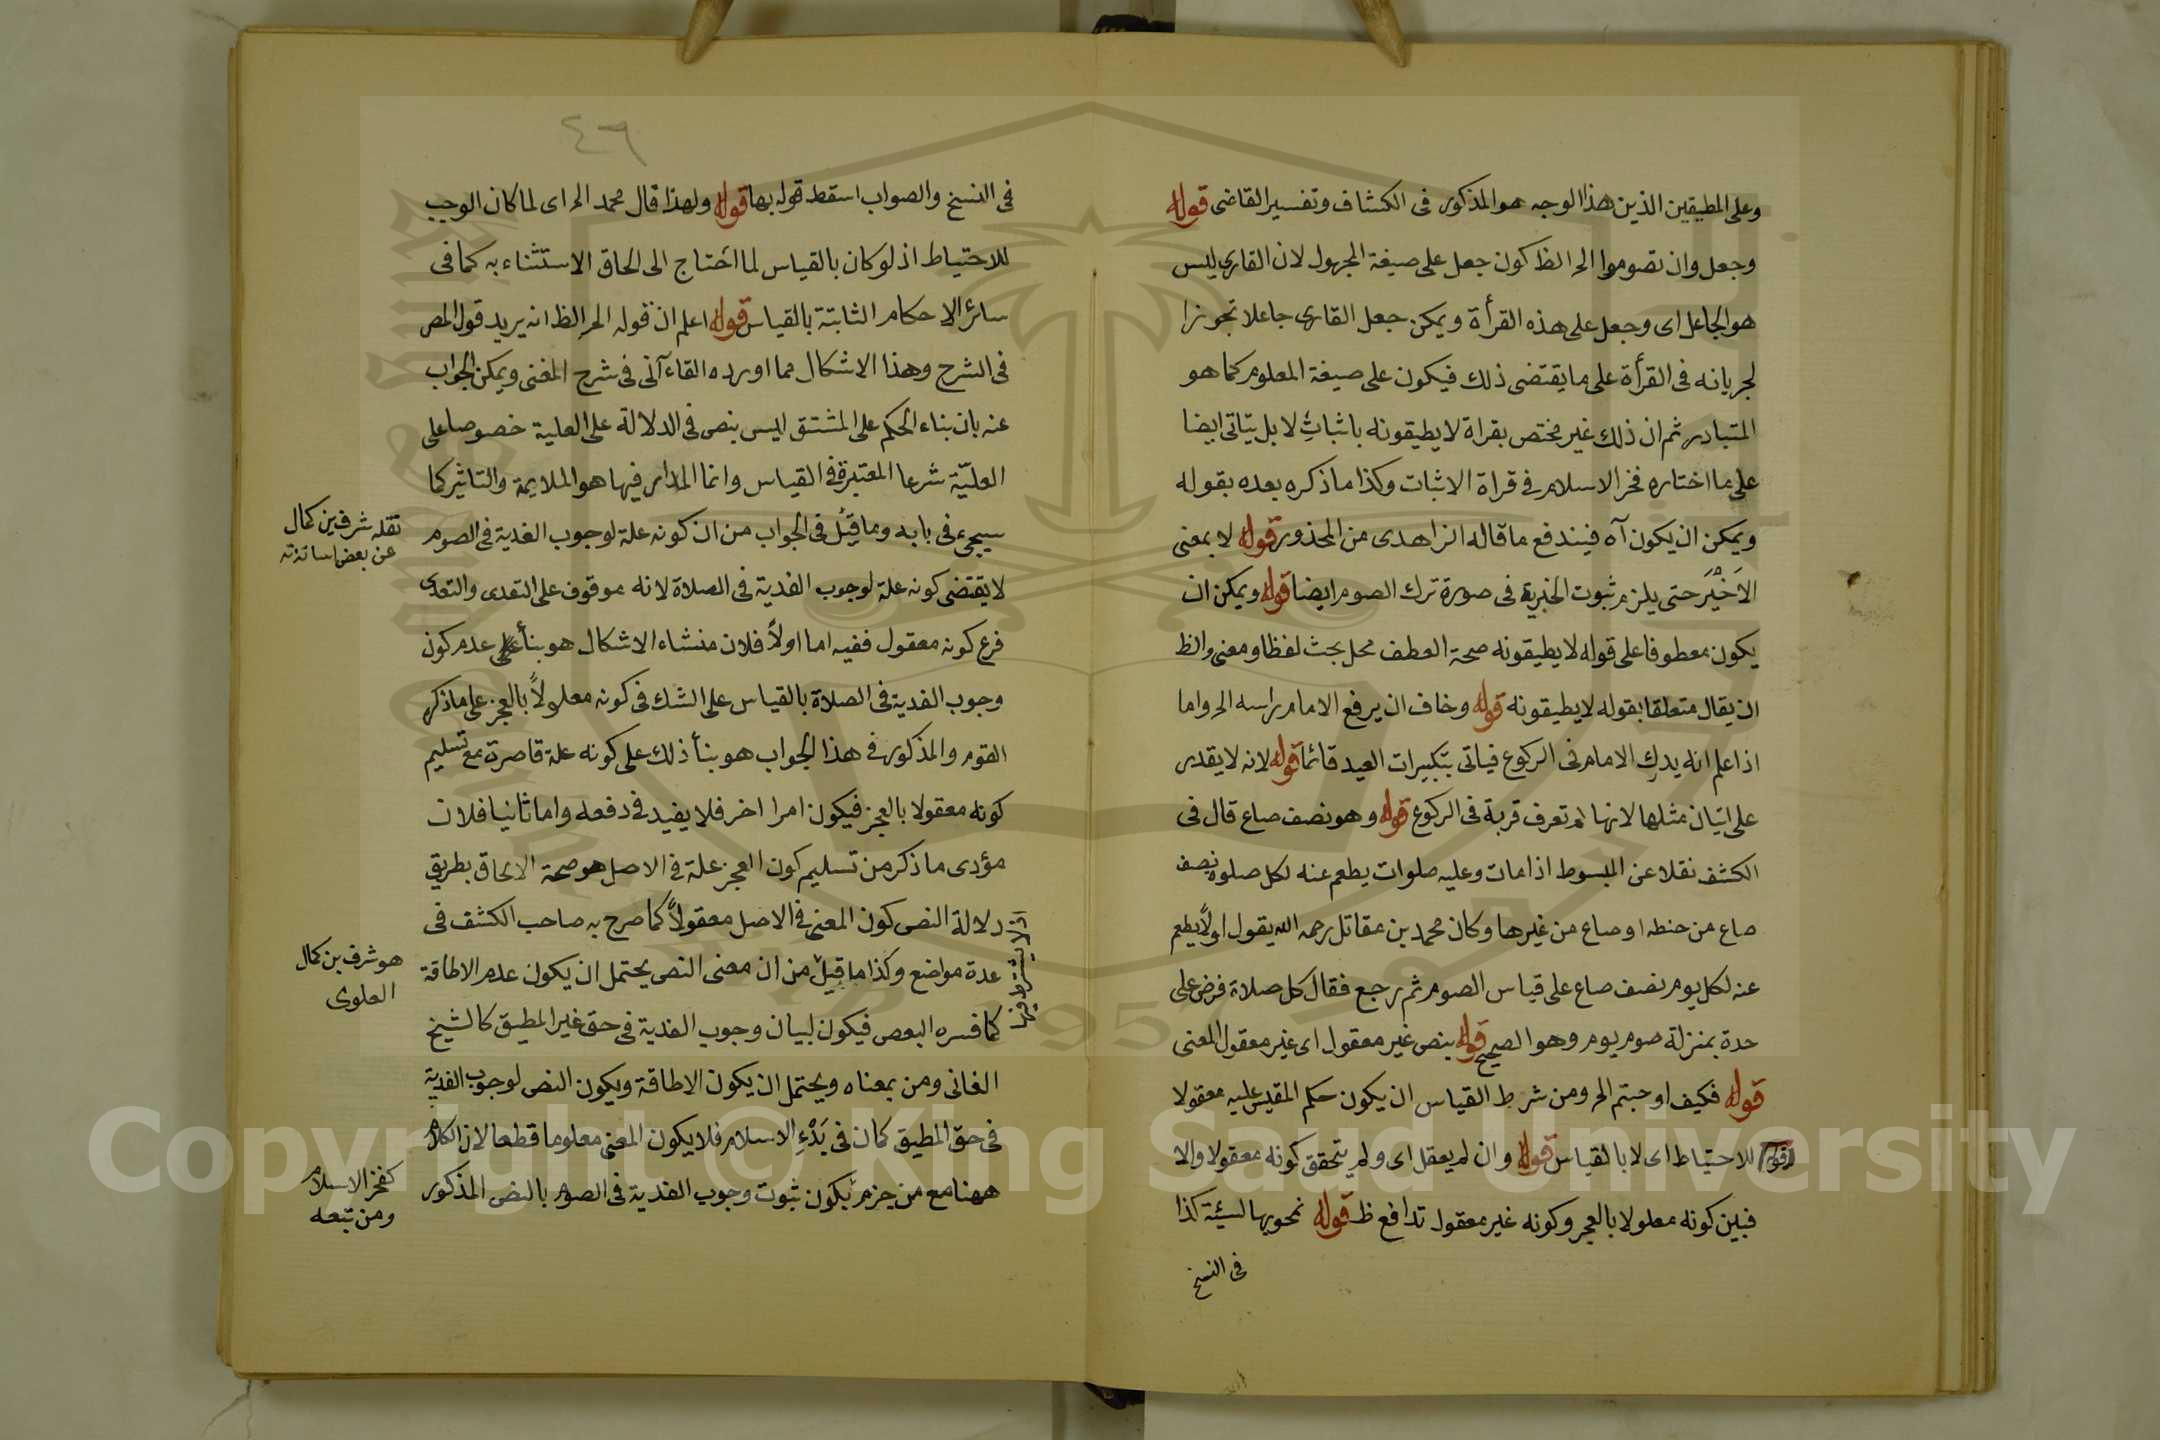 وعلى المطيقين الذين هذا الوجه هو المذكور فى الكشاف وتفسير القاضى قوله
وجعل وان تصوموا الخ الظ كون جعل على صيغة المجهول لان القارى ليس
هو الجاعل اى وجعل على هذه القرأة ويمكن جعل القارى جاعلا تجوزا
لجريانه فى القرأة على ما يقتضى ذلك فيكون على صيغة المعلوم كما هو
المتبادر ثم ان ذلك غير مختص بقراة لا يطيقونه باثبات لا بل يتاتى ايضا
على ما اختاره فخر الاسلام فى قراة الاثبات وكذا ما ذكره بعده بقوله
ويمكن ان يكون آه فيندفع ما قاله الزاهدى من المحذور قوله لا بمعنى
الاَخْيَر حتى يلزم ثبوت الخيرية فى صورة ترك الصوم ايضا قوله ويمكن ان
يكون معطوفا على قوله لا يطيقونه صحة العطف محل بحث لفظا ومعنى والظ
ان يقال متعلقا بقوله لا يطيقونه قوله وخاف ان يرفع الامام راسه الخ واما
اذا علم انه يدرك الامام فى الركوع فياتى بتكبيرات العيد قائما قوله لانه لا يقدر
على اتيان مثلها لانها لم تعرف قربة فى الركوع قوله وهو نصف صاع قال فى
الكشف نقلا عن المبسوط اذا مات وعليه صلوات يطعم عنه لكل صلوة نصف
صاع من حنطه او صاع من غيرها وكان محمد بن مقاتل رحمه الله يقول اولاً يطعم
عنه لكل يوم نصف صاع على قياس الصوم ثم رجع فقال كل صلاة فرض على
حدة بمنزلة صوم يوم وهو الصحيح قوله بنص غير معقول اى غير معقول المعنى
قوله فكيف اوجبتم الخ ومن شرط القياس ان يكون حكم المقيس عليه معقولا
قوله للاحتياط اى لا بالقياس قوله وان لم يعقل اى ولم يتحقق كونه معقولا والا
فبين كونه معلولا بالعجز وكونه غير معقول تدافع ظ قوله نمحو بها السيئة كذا
فى النسخ
٤٦
فى النسخ والصواب اسقط قوله بها قوله ولهذا قال محمد الخ اى لما كان الوجب
للاحتياط اذ لو كان بالقياس لما احتاج الى الحاق الاستثناء به كما فى
سائر الاحكام الثابتة بالقياس قوله اعلم ان قوله الخ الظ انه يريد قول المص
فى الشرح وهذا الاشكال مما اورده القاءآنى فى شرح المغنى ويمكن الجواب
عنه بان بناء الحكم على المشتق ليس بنص فى الدلالة على العلية خصوصا على
العليّة شرعا المعتبرة فى القياس وانما المدار فيها هو الملايمة والتاثير كما
سيجىء فى بابه وما قيل فى الجواب من ان كونه علة لوجوب الفدية فى الصوم
لا يقتضى كونه علة لوجوب الفدية فى الصلاة لانه موقوف على التعدى والتعدى
فرع كونه معقول ففيه اما اولاً فلان منشاء الاشكال هو بناء على عدم كون
وجوب الفدية فى الصلاة بالقياس على الشك فى كونه معلولاً بالعجز على ما ذكره
القوم والمذكور فى هذا الجواب هو بنأ ذلك على كونه علة قاصرة مع تسليم
كونه معقولا بالعجز فيكون امرا اخر فلا يفيد فى دفعه واما ثانيا فلان
مؤدى ما ذكر من تسليم كون العجز علة فى الاصل هو صحة الالحاق بطريق
دلالة النص كون المعنى فى الاصل معقولاً كما صرح به صاحب الكشف فى
عدة مواضع وكذا ما قيل من ان معنى النص يحتمل ان يكون عدم الاطاقة
كما فسره البعض فيكون لبيان وجوب الفدية فى حق غير المطيق كالشيخ
الفانى ومن بمعناه ويحتمل ان يكون الاطاقة ويكون النص لوجوب الفدية
فى حق المطيق كان فى بَدْءِ الاسلام فلا يكون المعنى معلوما قطعا لان الكلام
ههنا مع من جزم بكون ثبوت وجوب الفدية فى الصوم بالنص المذكور
نقله شرف بن كمال
عن بعض اساتذته
هو شرف بن كمال
العلوى
كفخر الاسلام
ومن تبعه
1957
Copyright © King Saud University